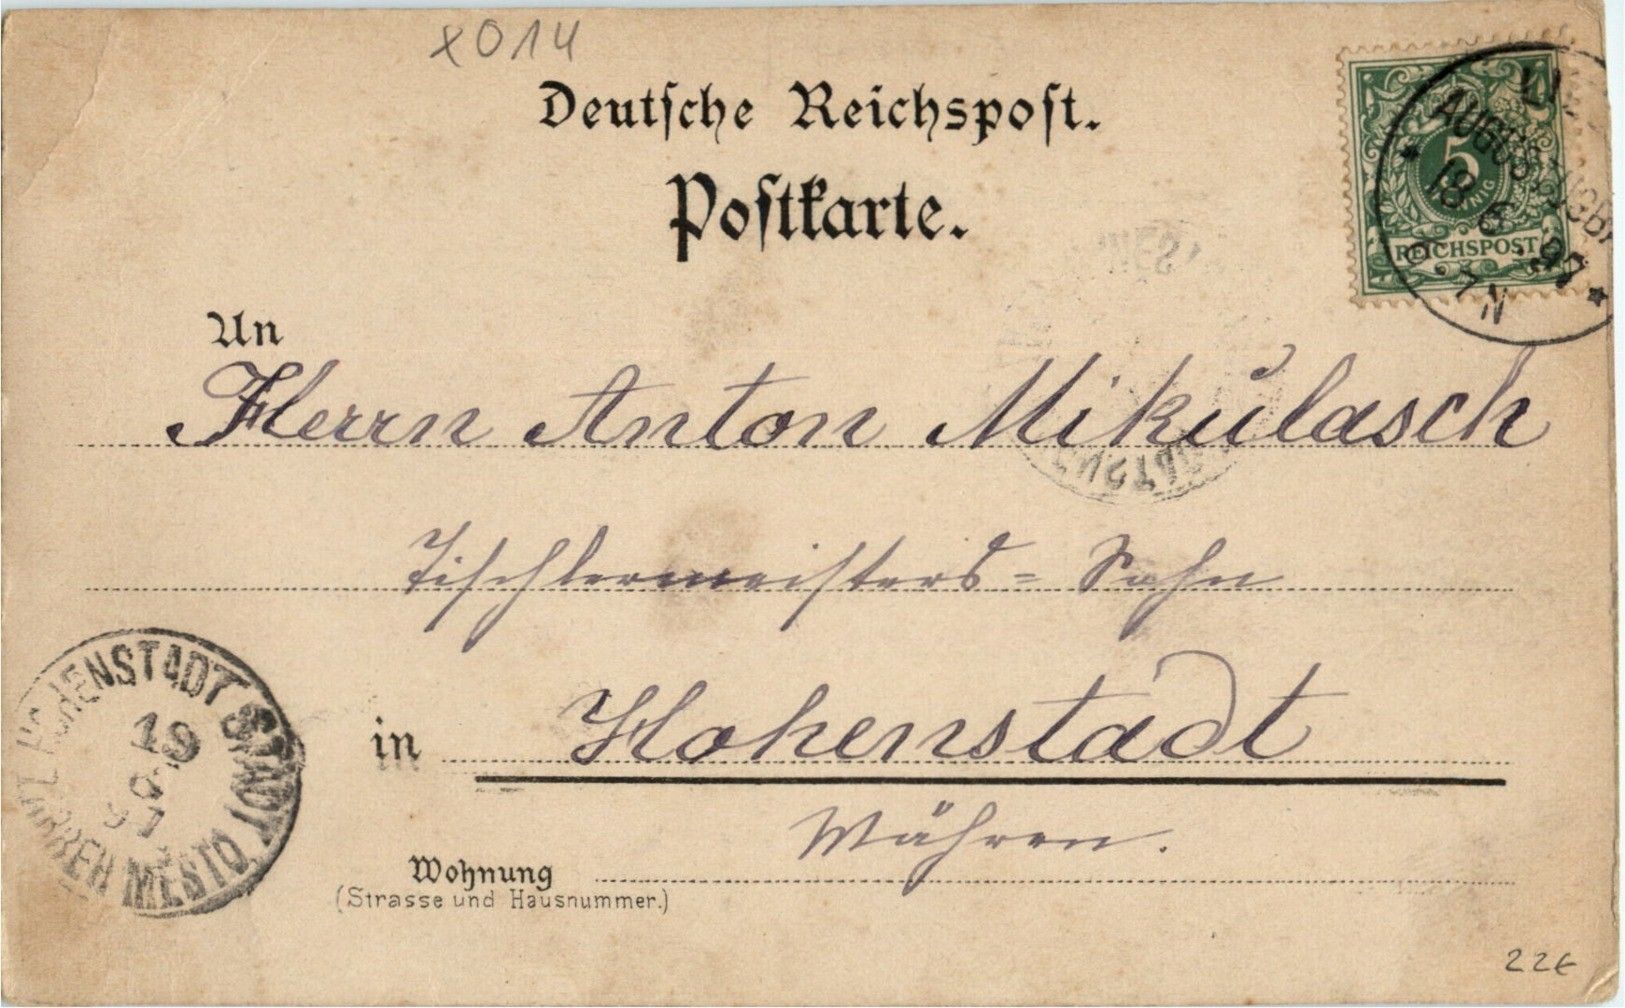 x014
Deutsche Reichspost.
Postkarte.
5
REICHSPOST
18 6 97
An
Herrn Anton Mikulasch
Tischlermeisters-Sohn
in Hohenstadt
Mähren.
Wohnung
(Strasse und Hausnummer.)
HOHENSTADT STADT
MESTO
19
6
97
22€